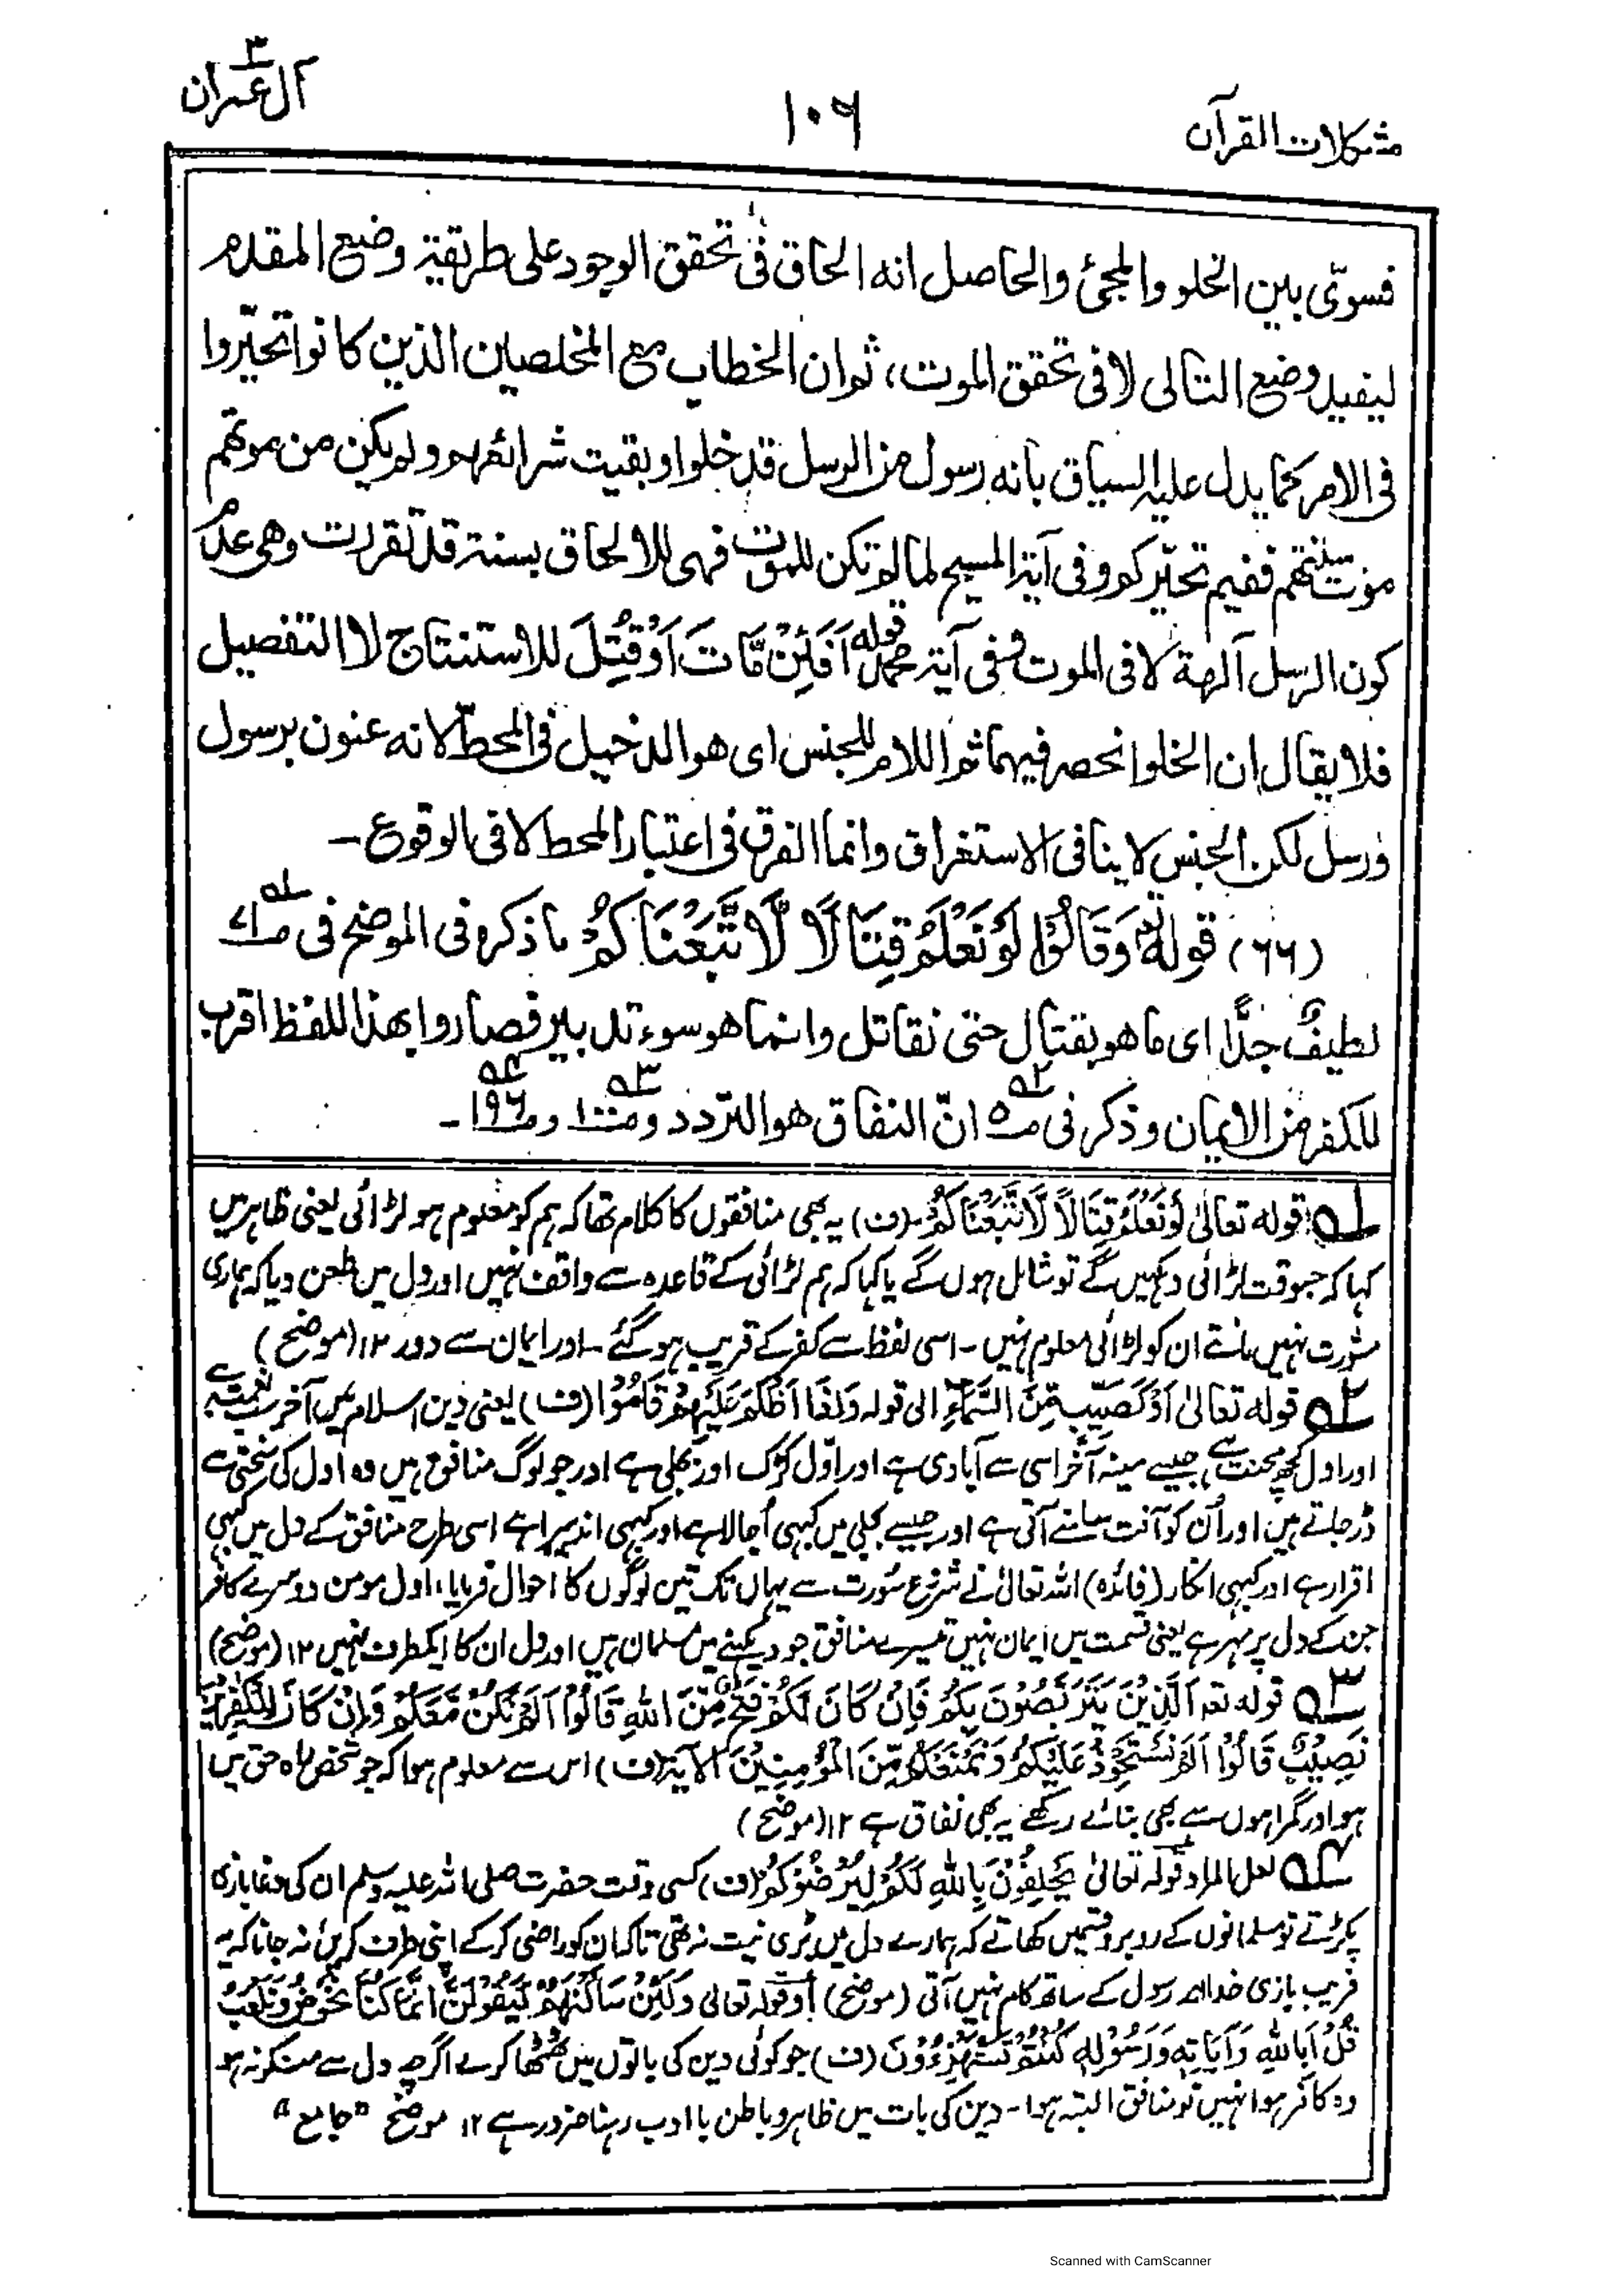 مشكلات القرآن
١٠٦
آل عمران ٣
فسوّى بين الخلو والمجئ والحاصل انه الحاق فى تحقق الوجود على طريقة وضع المقدم
ليفيد وضع التالى لا فى تحقق الموت، ثم ان الخطاب مع المخلصين الذين كانوا تحيّروا
فى الامر كما يدل عليه السياق بانه رسول من الرسل قد خلوا وبقيت شرائعهم ولم يكن من موتهم
موت سنتهم ففيم تحيّركم وفى آية المسيح لما لم تكن للموت فهى للالحاق بسنة قد تقررت وهى عدم
كون الرسل آلهة لا فى الموت ففى آية محمد قوله اَفَائِنْ مَّاتَ اَوْ قُتِلَ للاستنتاج لا التفصيل
فلا يقال ان الخلو انحصر فيهما ثم اللام للجنس اى هو الدخيل فى المحطّ لانه عنون برسول
ورسل لكن الجنس لا ينافى الاستغراق وانما الفرق فى اعتبار المحط لا فى الوقوع۔
(٦٦) قوله تعم وَقَالُوْا لَوْ نَعْلَمُ قِتَالًا لَّا تَّبَعْنَاكُمْ ما ذكره فى الموضح فى صـ٧١ ؎١
لطيفٌ جدًّا اى ما هو بقتال حتى نقاتل وانما هو سوء تدبير فصاروا بهذا اللفظ اقرب
للكفر من الايمان وذكر فى صـ٥ ؎٢ انّ النفاق هو التردد وصـ١٠٠ ؎٣ وصـ١٩٦ ؎٤۔
؎١ قوله تعالىٰ لَوْ نَعْلَمُ قِتَالًا لَّا تَّبَعْنَاكُمْ۔ (ف) یہ بھی منافقوں کا کلام تھا کہ ہم کو معلوم ہو لڑائی یعنی ظاہر میں
کہا کہ جسوقت لڑائی دیکھیں گے تو شامل ہوں گے یا کہا کہ ہم لڑائی کے قاعدہ سے واقف نہیں اور دل میں طعن دیا کہ ہماری
مشورت نہیں مانتے ان کو لڑائی معلوم نہیں۔ اسی لفظ سے کفر کے قریب ہو گئے۔ اور ایمان سے دور ۱۲ (موضح)
؎٢ قوله تعالىٰ اَوْ كَصَيِّبٍ مِّنَ السَّمَآءِ الى قوله وَاِذَا اَظْلَمَ عَلَيْهِمْ قَامُوْا (ف) یعنی دین اسلام میں آخر سب نعمت ہے
اور اول کچھ محنت ہے، جیسے مینہ آخر اسی سے آبادی ہے اور اوّل کڑک اور بجلی ہے اور جو لوگ منافق ہیں وہ اول کی سختی سے
ڈر جاتے ہیں اور اُن کو آفت سامنے آتی ہے اور جیسے بجلی میں کبھی اُجالا ہے اور کبھی اندھیرا ہے اسی طرح منافق کے دل میں کبھی
اقرار ہے اور کبھی انکار (فائدہ) اللہ تعالیٰ نے شروع سورت سے یہاں تک تین لوگوں کا احوال فرمایا، اول مومن دوسرے کافر
جن کے دل پر مہر ہے یعنی قسمت میں ایمان نہیں تیسرے منافق جو دیکھنے میں مسلمان ہیں اور دل ان کا ایک طرف نہیں ۱۲ (موضح)
؎٣ قوله تعم اَلَّذِيْنَ يَتَرَبَّصُوْنَ بِكُمْ فَاِنْ كَانَ لَكُمْ فَتْحٌ مِّنَ اللّٰهِ قَالُوْا اَلَمْ نَكُنْ مَّعَكُمْ وَاِنْ كَانَ لِلْكٰفِرِيْنَ
نَصِيْبٌ قَالُوْا اَلَمْ نَسْتَحْوِذْ عَلَيْكُمْ وَنَمْنَعْكُمْ مِّنَ الْمُؤْمِنِيْنَ الآية (ف) اس سے معلوم ہوا کہ جو شخص راہ حق میں
ہو اور گمراہوں سے بھی بنائے رکھے یہ بھی نفاق ہے ۱۲ (موضح)
؎٤ لعل المراد قوله تعالىٰ يَحْلِفُوْنَ بِاللّٰهِ لَكُمْ لِيُرْضُوْكُمْ (ف) کسی وقت حضرت صلی اللہ علیہ وسلم ان کی دغابازی
پکڑتے تو مسلمانوں کے روبرو قسمیں کھاتے کہ ہمارے دل میں بُری نیت نہ تھی تاکہ ان کو راضی کر کے اپنی طرف کریں نہ جانا کہ یہ
فریب بازی خدا اور رسول کے ساتھ کام نہیں آتی (موضح) او قوله تعالى وَلَئِنْ سَاَلْتَهُمْ لَيَقُوْلُنَّ اِنَّمَا كُنَّا نَخُوْضُ وَنَلْعَبُ
قُلْ اَبِاللّٰهِ وَآيَاتِهٖ وَرَسُوْلِهٖ كُنْتُمْ تَسْتَهْزِءُوْنَ (ف) جو کوئی دین کی باتوں میں ٹھٹھا کرے اگرچہ دل سے منکر نہ ہو
وہ کافر ہوا نہیں تو منافق البتہ ہوا۔ دین کی بات میں ظاہر و باطن با ادب رہنا ضرور ہے ۱۲ موضح "جامع"
Scanned with CamScanner